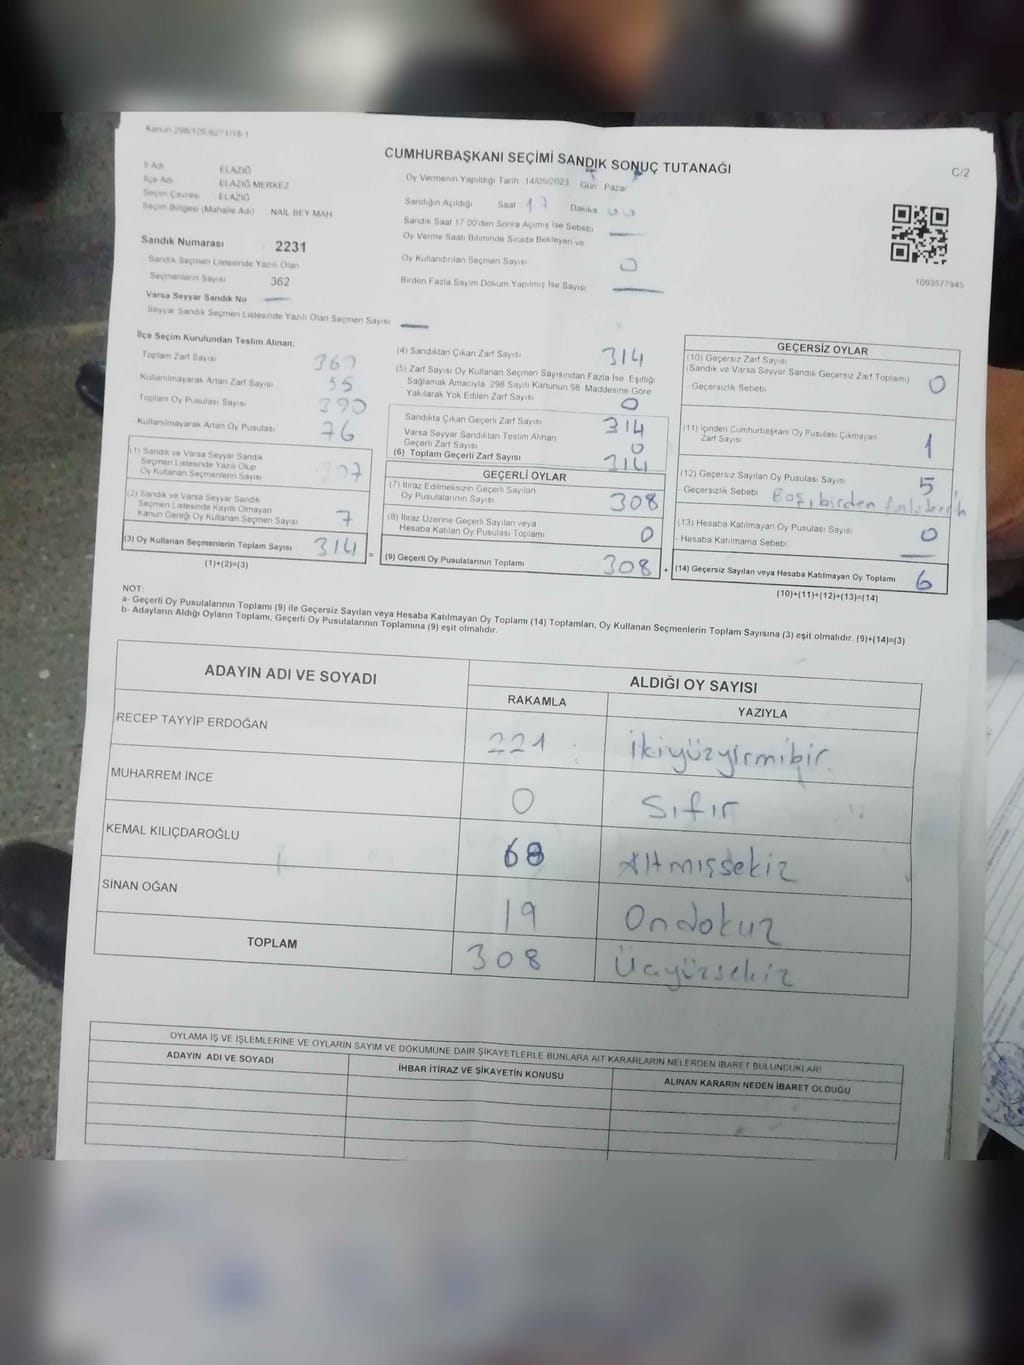 Kanun 298/105,6271/18-1
CUMHURBAŞKANI SEÇİMİ SANDIK SONUÇ TUTANAĞI
C/2
İl Adı ELAZIĞ
İlçe Adı ELAZIĞ MERKEZ
Seçim Çevresi ELAZIĞ
Seçim Bölgesi (Mahalle Adı) NAİL BEY MAH
Sandık Numarası 2231
Sandık Seçmen Listesinde Yazılı Olan
Seçmenlerin Sayısı 362
Varsa Seyyar Sandık No —
Seyyar Sandık Seçmen Listesinde Yazılı Olan Seçmen Sayısı —
Oy Vermenin Yapıldığı Tarih 14/05/2023 Gün Pazar
Sandığın Açıldığı Saat 17 Dakika 00
Sandık Saat 17:00'den Sonra Açılmış İse Sebebi —
Oy Verme Saati Bitiminde Sırada Bekleyen ve
Oy Kullandırılan Seçmen Sayısı 0
Birden Fazla Sayım Döküm Yapılmış İse Sayısı —
1093577945
İlçe Seçim Kurulundan Teslim Alınan;
Toplam Zarf Sayısı
Kullanılmayarak Artan Zarf Sayısı
Toplam Oy Pusulası Sayısı 390
Kullanılmayarak Artan Oy Pusulası 76
(1) Sandık ve Varsa Seyyar Sandık
Seçmen Listesinde Yazılı Olup
Oy Kullanan Seçmenlerin Sayısı 307
(2) Sandık ve Varsa Seyyar Sandık
Seçmen Listesinde Kayıtlı Olmayan
Kanun Gereği Oy Kullanan Seçmen Sayısı 7
(3) Oy Kullanan Seçmenlerin Toplam Sayısı 314 =
(1)+(2)=(3)
(4) Sandıktan Çıkan Zarf Sayısı 314
(5) Zarf Sayısı Oy Kullanan Seçmen Sayısından Fazla İse, Eşitliği
Sağlamak Amacıyla, 298 Sayılı Kanunun 98. Maddesine Göre
Yakılarak Yok Edilen Zarf Sayısı 0
Sandıkta Çıkan Geçerli Zarf Sayısı 314
Varsa Seyyar Sandıktan Teslim Alınan
Geçerli Zarf Sayısı 0
(6) Toplam Geçerli Zarf Sayısı 314
GEÇERLİ OYLAR
(7) İtiraz Edilmeksizin Geçerli Sayılan
Oy Pusulalarının Sayısı 308
(8) İtiraz Üzerine Geçerli Sayılan veya
Hesaba Katılan Oy Pusulası Toplamı 0
(9) Geçerli Oy Pusulalarının Toplamı 308 +
GEÇERSİZ OYLAR
(10) Geçersiz Zarf Sayısı
(Sandık ve Varsa Seyyar Sandık Geçersiz Zarf Toplamı) 0
- Geçersizlik Sebebi
(11) İçinden Cumhurbaşkanı Oy Pusulası Çıkmayan
Zarf Sayısı 1
(12) Geçersiz Sayılan Oy Pusulası Sayısı 5
- Geçersizlik Sebebi Boş, birden
(13) Hesaba Katılmayan Oy Pusulası Sayısı 0
- Hesaba Katılmama Sebebi —
(14) Geçersiz Sayılan veya Hesaba Katılmayan Oy Toplamı 6
(10)+(11)+(12)+(13)=(14)
NOT:
a- Geçerli Oy Pusulalarının Toplamı (9) ile Geçersiz Sayılan veya Hesaba Katılmayan Oy Toplamı (14) Toplamları, Oy Kullanan Seçmenlerin Toplam Sayısına (3) eşit olmalıdır. (9)+(14)=(3)
b- Adayların Aldığı Oyların Toplamı, Geçerli Oy Pusulalarının Toplamına (9) eşit olmalıdır.
ADAYIN ADI VE SOYADI ALDIĞI OY SAYISI
RAKAMLA YAZIYLA
RECEP TAYYİP ERDOĞAN 221 ikiyüzyirmibir.
MUHARREM İNCE 0 Sıfır
KEMAL KILIÇDAROĞLU 68 Altmışsekiz
SİNAN OĞAN 19 Ondokuz
TOPLAM 308 Üçyüzsekiz
OYLAMA İŞ VE İŞLEMLERİNE VE OYLARIN SAYIM VE DÖKÜMÜNE DAİR ŞİKAYETLERLE BUNLARA AİT KARARLARIN NELERDEN İBARET BULUNDUKLARI
ADAYIN ADI VE SOYADI İHBAR İTİRAZ VE ŞİKAYETİN KONUSU ALINAN KARARIN NEDEN İBARET OLDUĞU